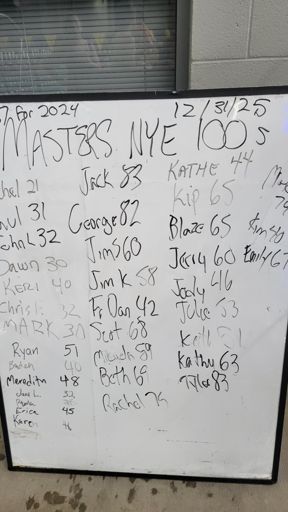 For 2024
12/31/25
MASTERS NYE 100s
hel 21
ul 31
John L 32
Dawn 30
KERI 40
Chris 32
MARK 30
Ryan 51
40
Meredith 48
Jane L. 32
Erica 45
Karen
Jack 83
George 82
Jim S 60
Jim K 58
Fr Dan 42
Scot 68
Miranda 59
Beth 6
Rachel
KATHE 44
Kip 65
Blaze 65
Jerry 60
Jody 46
Julie 53
Kathy 63
Tyler 83
Emily 67